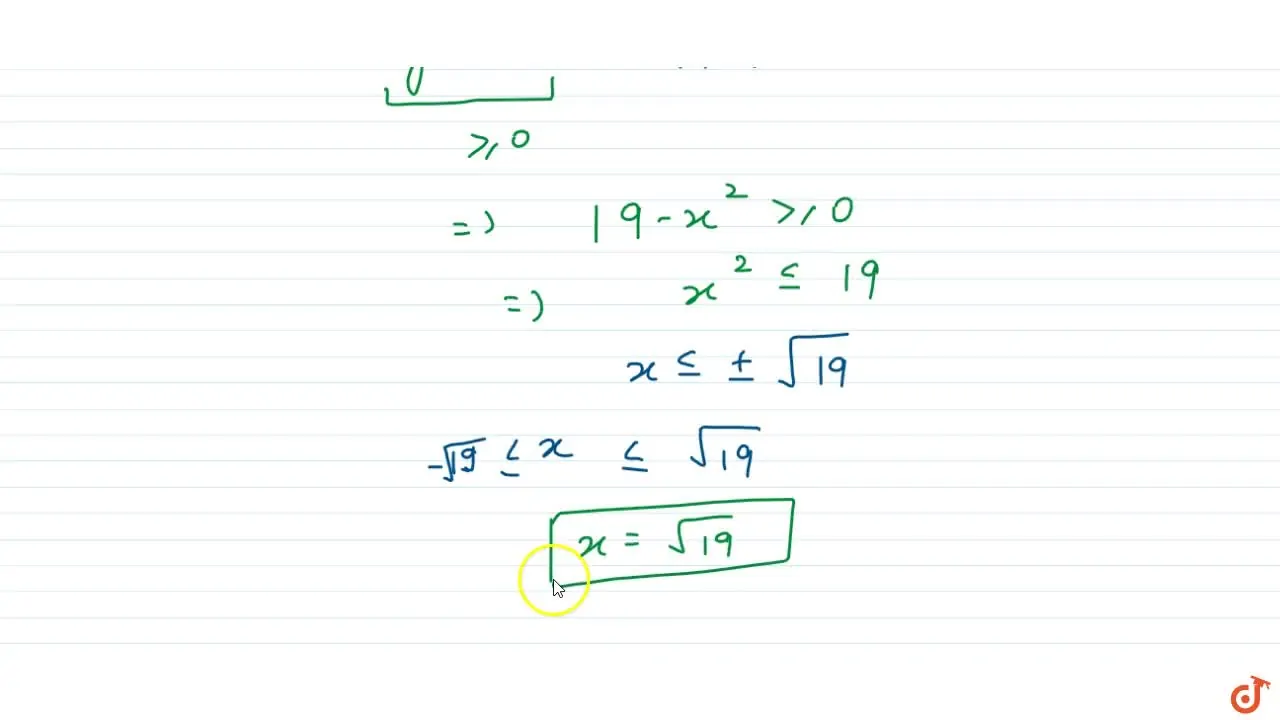 ≥ 0
=) 19 - x² ≥ 0
=) x² ≤ 19
x ≤ ± √19
-√19 ≤ x ≤ √19
x = √19